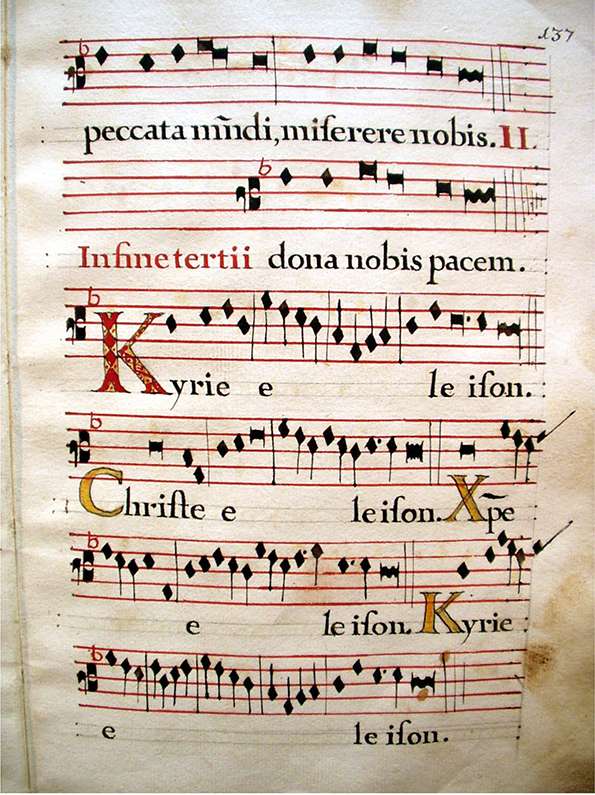 137
peccata mūdi, miſerere nobis. II.
In fine tertii dona nobis pacem.
Kyrie e le iſon.
Chriſte e le iſon. Xp̄e
e le iſon. Kyrie
e le iſon.